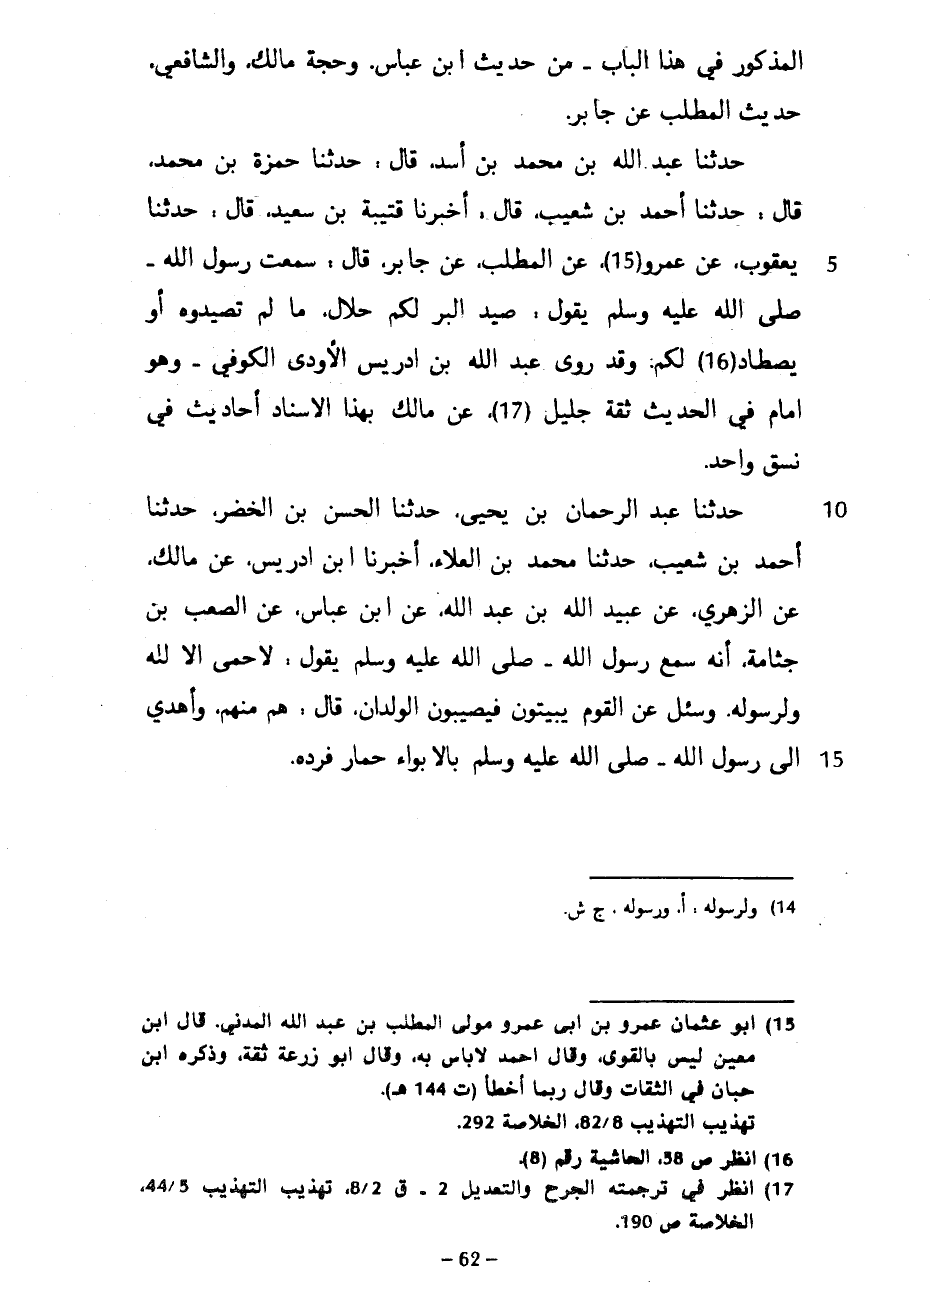 المذكور في هذا الباب ـ من حديث ابن عباس. وحجة مالك، والشافعي،
حديث المطلب عن جابر.
حدثنا عبد الله بن محمد بن أسد، قال : حدثنا حمزة بن محمد،
قال : حدثنا أحمد بن شعيب، قال : أخبرنا قتيبة بن سعيد، قال : حدثنا
يعقوب، عن عمرو(15)، عن المطلب، عن جابر، قال : سمعت رسول الله ـ 5
صلى الله عليه وسلم يقول : صيد البر لكم حلال، ما لم تصيدوه أو
يصطاد(16) لكم: وقد روى عبد الله بن ادريس الأودى الكوفي ـ وهو
امام في الحديث ثقة جليل (17)، عن مالك بهذا الاسناد أحاديث في
نسق واحد.
حدثنا عبد الرحمان بن يحيى، حدثنا الحسن بن الخضر، حدثنا 10
أحمد بن شعيب، حدثنا محمد بن العلاء، أخبرنا ابن ادريس، عن مالك،
عن الزهري، عن عبيد الله بن عبد الله، عن ابن عباس، عن الصعب بن
جثامة، أنه سمع رسول الله ـ صلى الله عليه وسلم يقول : لاحمى الا لله
ولرسوله. وسئل عن القوم يبيتون فيصيبون الولدان، قال : هم منهم، وأهدي
الى رسول الله ـ صلى الله عليه وسلم بالابواء حمار فرده. 15
14) ولرسوله : أ. ورسوله . ج ش.
15) ابو عثمان عمرو بن ابى عمرو مولى المطلب بن عبد الله المدني. قال ابن
معين ليس بالقوى، وقال احمد لاباس به، وقال ابو زرعة ثقة، وذكره ابن
حبان في الثقات وقال ربما أخطأ (ت 144 هـ).
تهذيب التهذيب 82/8، الخلاصة 292.
16) انظر ص 58، الحاشية رقم (8).
17) انظر في ترجمته الجرح والتعديل 2 ـ ق 8/2، تهذيب التهذيب 44/5،
الخلاصة ص 190.
– 62 –